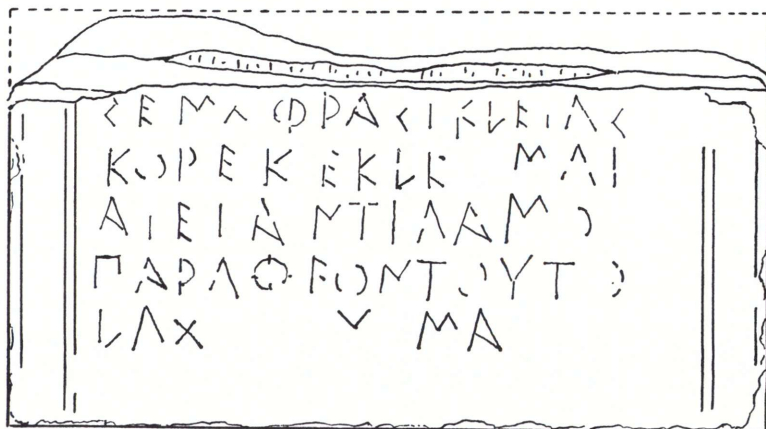 ΣΕΜΑΦΡΑΣΙΚΛΕΙΑΣ
ΚΟΡΕΚΕΚΛΕ ΜΑΙ
ΑΙΕΙΑΝΤΙΓΑΜΟ
ΠΑΡΑΘΕΟΝΤΟΥΤΟ
ΛΑΧ ΜΑ